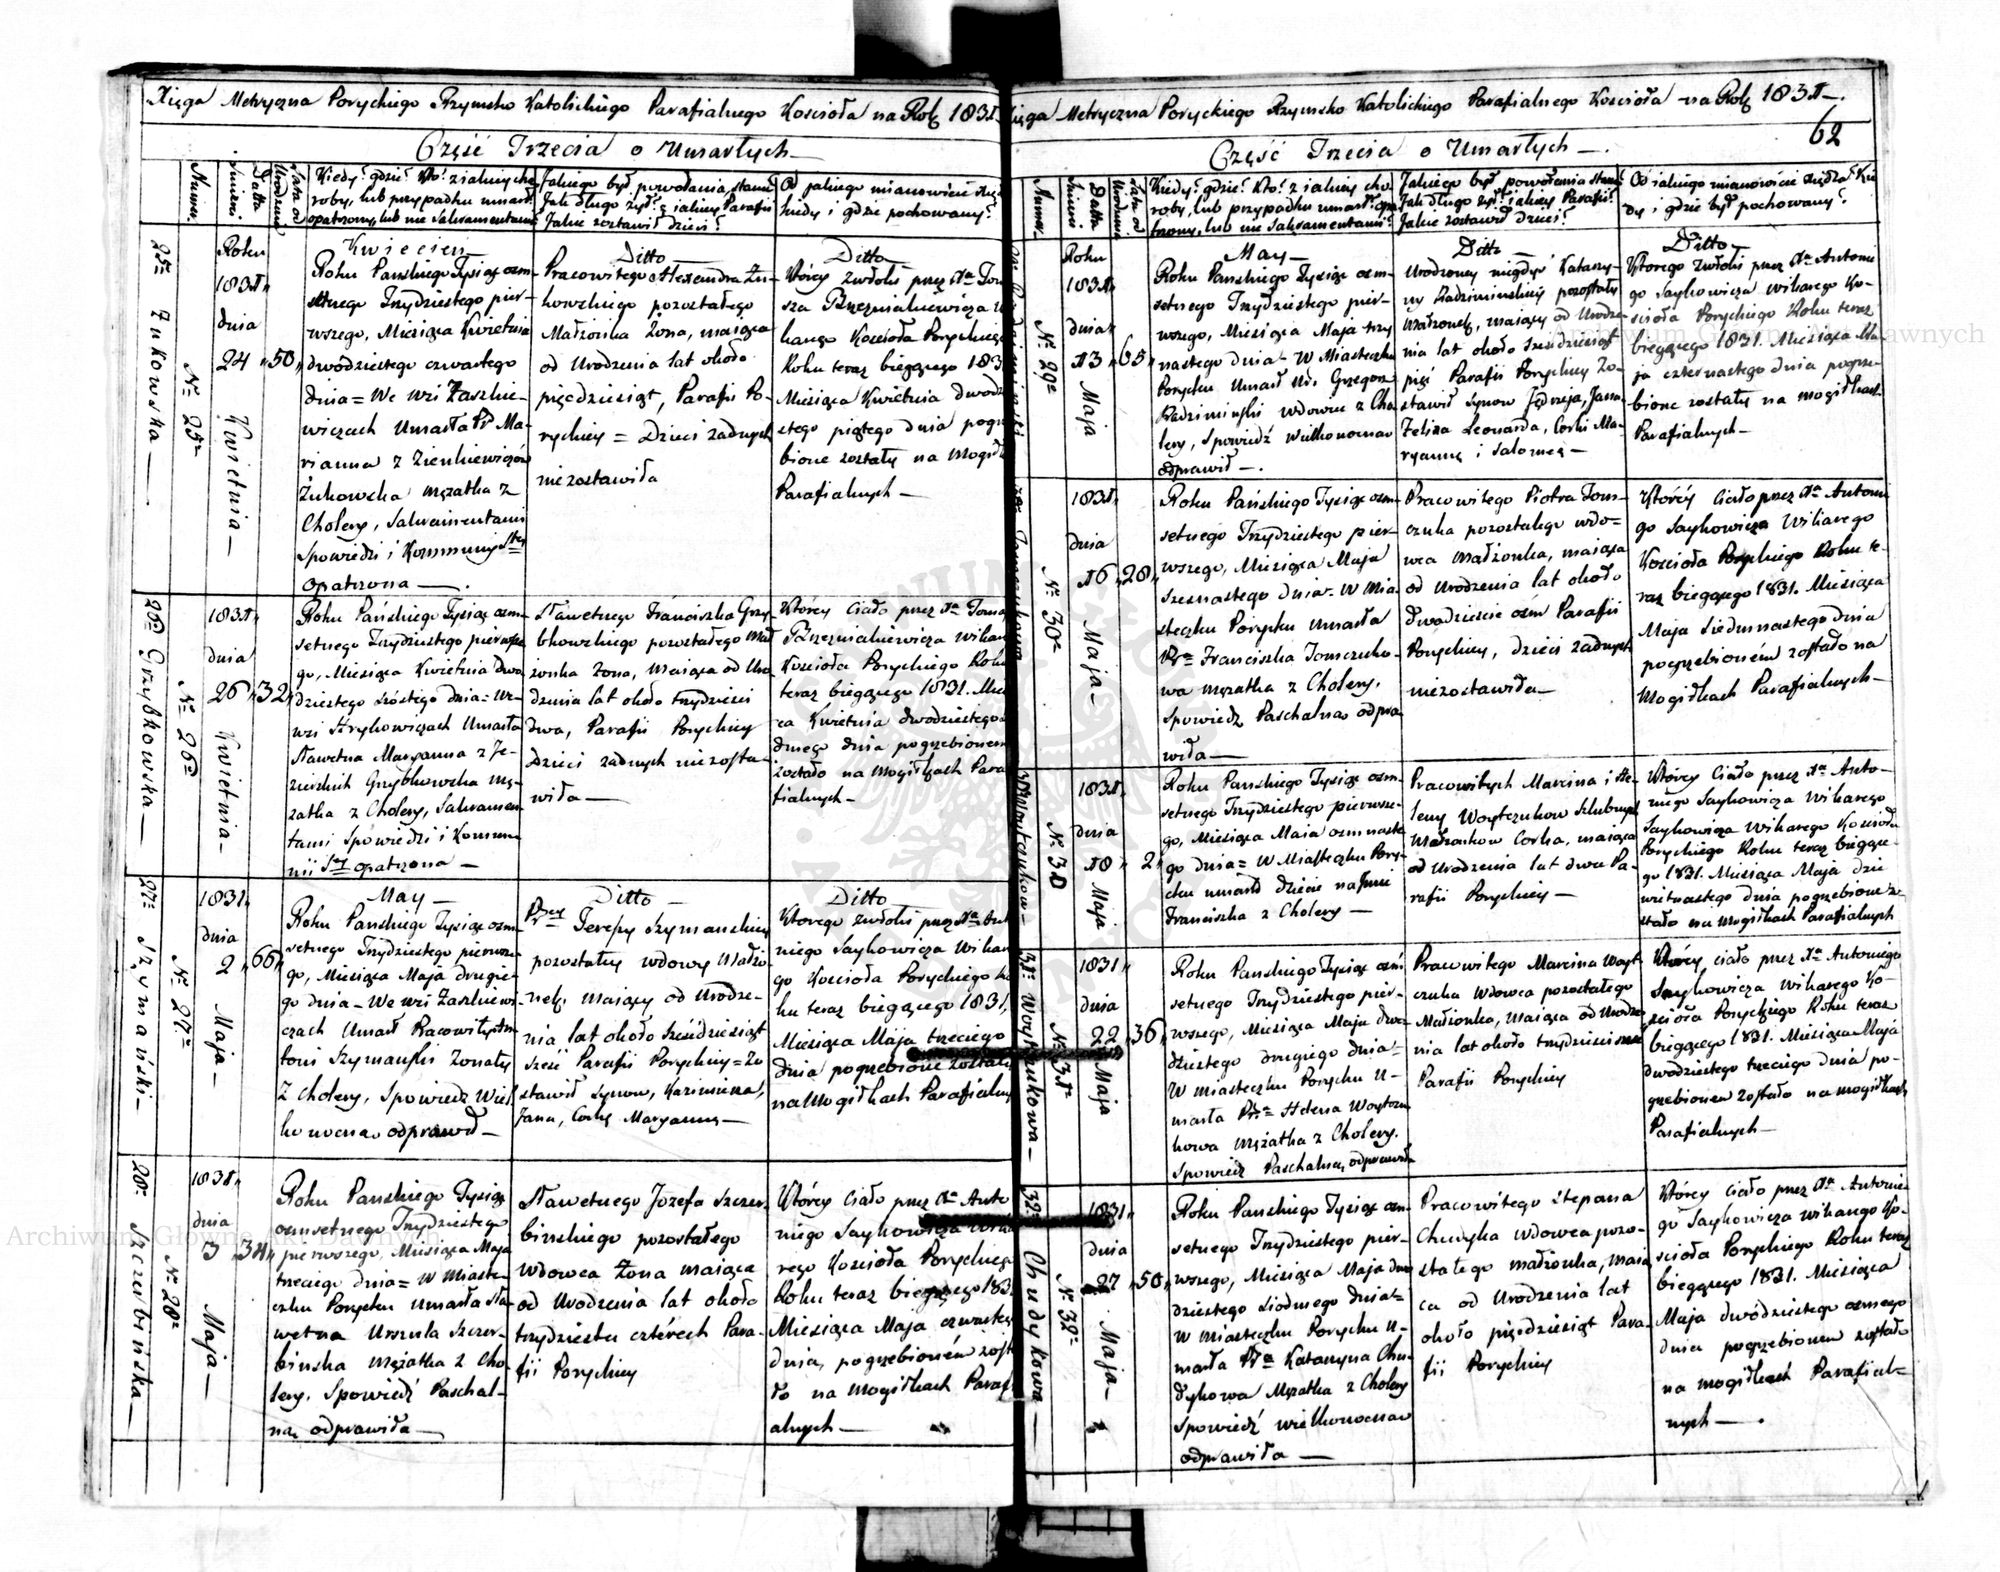 Xięga Metryczna Poryckiego Rzymsko Katolickiego Parafialnego Kościoła na Rok 1831
Część Trzecia o Umarłych
Numer
Imieni
Datta
Lata od Urodzenia
Kiedy? gdzie? Kto? z jakiey cho
roby, lub przypadku umarł?
opatrzony, lub nie Sakramentami?
Jakiego był powołania, stanu
Jak długo żył? z jakiey Parafii
Jakie zostawił dzieci?
Od jakiego mianowicie
kiedy i gdzie pochowany?
25ta Żukowska
Nr 25ta
Roku
1831
dnia
24
Kwietnia
50
Kwiecień
Roku Pańskiego Tysiąc osm-
setnego Trzydziestego pier-
wszego, Miesiąca Kwietnia
dwódziestego czwartego
dnia = We wsi Zaszkie-
wiczach Umarła Pr Ma-
rianna z Zienkiewiczów
Żukowska mężatka z
Cholery, Sakramentami
Spowiedzi i Kommunij Stey
opatrzona
Ditto
Pracowitego Alexandra Żu-
kowskiego pozostałego
Małżonka Żona, maiąca
od Urodzenia lat około
pięćdziesiąt, Parafii Po-
ryckiey = Dzieci żadnych
niezostawiła
Ditto
Którey zwłoki przez Xa Tom
sza Brzezniakiewicza
karego Kościoła Poryckiego
Roku teraz bieżącego 183
Miesiąca Kwietnia dwodz
stego piątego dnia pogrze
bione zostały na mogiłk
Parafialnych
26a Grzybkowska
Nr 26a
1831
dnia
26
Kwietnia
32
Roku Pańskiego Tysiąc osm-
setnego Trzydziestego pierwsze
go, Miesiąca Kwietnia dwa
dziestego szóstego dnia = We
wsi Strykowiczach Umarła
Sławetna Maryanna z Je-
zierskich Grzybkowska mę-
żatka z Cholery, Sakramen
tami Spowiedzi i Kommu
nii Stey opatrzona
Sławetnego Franciszka Grzy
bkowskiego pozostałego Mał
żonka żona, maiąca od Uro
dzenia lat około trzydzieści
dwa, Parafii Poryckiey
Dzieci żadnych niezosta-
wiła
Którey Ciało przez Xa Toma
Brzezniakiewicza Wikar
Kościoła Poryckiego Roku
teraz bieżącego 1831. Mies
ca Kwietnia dwodziestego
dmego dnia pogrzebionem
zostało na mogiłkach Para
fialnych
27ma Szymański
Nr 27ma
1831
dnia
2
Maja
66
May
Roku Pańskiego Tysiąc osm
setnego Trzydziestego pierwsze
go, Miesiąca Maja drugie-
go dnia - We wsi Zaszkiewi-
czach Umarł Pracowity An
toni Szymański Żonaty
z Cholery, Spowiedz Wiel
konocna odprawił
Ditto
Teressy Szymańskiey
pozostałey wdowy Małżo
nek, maiący od Urodze-
nia lat około sześćdziesiąt
sześć Parafii Poryckiey = zo
stawił Synow, Kazimierza,
Jana, Corkę Maryannę
Ditto
Ktorego zwłoki przez Xa Ant
niego Saykowicza Wikar
go Kościoła Poryckiego Ro
ku teraz bieżącego 1831
Miesiąca Maja trzeciego
dnia pogrzebione zostały
na Mogiłkach Parafialny
28ma Szczerbińska
Nr 28ma
1831
dnia
3
Maja
34
Roku Pańskiego Tysiąc
osmsetnego Trzydziestego
pierwszego, Miesiąca Maja
trzeciego dnia = w Miaste-
czku Porycku umarła Sła-
wetna Urszula Szczer-
binska mężatka z Cho-
lery. Spowiedź Paschal-
ną odprawiła
Sławetnego Jozefa Szczer
binskiego pozostałego
Wdowca Żona maiąca
od Urodzenia lat około
trzydziestu cztérech Para-
fii Poryckiey
Którey Ciało przez Xa Anto
niego Saykowicza Wika
rego Kościoła Poryckieg
Roku teraz bieżącego 183
Miesiąca Maja czwarteg
dnia, pogrzebioném zost
ło na mogiłkach Paraf
alnych
Xięga Metryczna Poryckiego Rzymsko Katolickiego Parafialnego Kościoła na Rok 1831
62
Część Trzecia o Umarłych
Numer
Imieni
Datta
Lata od Urodzenia
Kiedy? gdzie? Kto? z jakiey cho-
roby, lub przypadku umarł? opa
trzony, lub nie Sakramentami?
Jakiego był powołania stanu
Jak długo żył? z jakiey Parafii?
Jakie zostawił dzieci?
Od jakiego mianowicie Xiędza? Kie
dy i gdzie był pochowany?
Nr 29ta
Roku
1831
dnia
13
Maja
65
May
Roku Pańskiego Tysiąc osm-
setnego Trzydziestego pier-
wszego, Miesiąca Maja trzy
nastego dnia - W Miasteczku
Porycku Umarł Ur. Grzegorz
Radziminski wdowiec z Cho
lery, Spowiedź Wielkonocnaw
odprawił
Ditto
Urodzoney niegdyś Katarzy-
ny Radziminskiey pozostały
Małżonek, maiący od Urodze
nia lat około sześdziesiąt
pięć Parafii Poryckiey Zo-
stawił Synow Jędrzeja, Jana
Felixa Leonarda, Corki Ma-
ryannę i Salomeę
Ditto
Ktorego zwłoki przez Xa Antonie
go Saykowicza Wikarego Ko-
ścioła Poryckiego Roku teraz
bieżącego 1831. Miesiąca Ma
ja czternastego dnia pogrze-
bione zostały na mogiłkach
Parafialnych
Nr 30ta
1831
dnia
16
Maja
28
Roku Pańskiego Tysiąc osm
setnego Trzydziestego pier-
wszego, Miesiąca Maja
szesnastego dnia - W Mia
steczku Porycku umarła
Pra Franciszka Tomczuko-
wa mężatka z Cholery.
Spowiedz Paschalna odpra
wiła
Pracowitego Piotra Tom-
czuka pozostałego wdo=
wca Małżonka, maiąca
od Urodzenia lat około
dwadzieście osm Parafii
Poryckiey, dzieci żadnych
niezostawiła
Którey Ciało przez Xa Antonie
go Saykowicza Wikarego
Kościoła Poryckiego Roku te-
raz bieżącego 1831. Miesiąca
Maja siedmnastego dnia
pogrzebioném zostało na
Mogiłkach Parafialnych
Nr 30
1831
dnia
18
Maja
2
Roku Pańskiego Tysiąc osm
setnego Trzydziestego pierwsze-
go, Miesiąca Maia osmnaste
go dnia = w Miasteczku Pory-
cku umarło dziecie na Jmie
Franciszka z Cholery
Pracowitych Marcina i He-
leny Woytczukow Szlubnych
Małżonkow Corka, maiąca
od Urodzenia lat dwa Pa-
rafii Poryckiey
Którey Ciało przez Xa Anto-
niego Saykowicza Wikarego
Saykowicza Wikarego Kościoła
Poryckiego Roku teraz bieżące-
go 1831. Miesiąca Maja dzie
wietnastego dnia pogrzebione zo
stało na mogiłkach Parafialnych
31a Woytczukowa
Nr 31a
1831
dnia
22
Maja
36
Roku Pańskiego Tysiąc osm
setnego Trzydziestego pier-
wszego, Miesiąca Maja dwo
dziestego drugiego dnia=
W Miasteczku Porycku u-
marła Pra Helena Woytczu
kowa mężatka z Cholery.
Spowiedz Paschalną odprawiła
Pracowitego Marcina Woyt
czuka Wdowca pozostałego
Małżonka, maiąca od Urodze
nia lat około trzydzieści sześć
Parafii Poryckiey
Którey ciało przez Xa Antoniego
Saykowicza Wikarego Ko-
ścioła Poryckiego Roku teraz
bieżącego 1831. Miesiąca Maja
dwodziestego trzeciego dnia po-
grzebionem zostało na mogiłkach
Parafialnych
32a Chudykowa
Nr 32a
1831
dnia
27
Maja
50
Roku Pańskiego Tysiąc osm
setnego Trzydziestego pier-
wszego, Miesiąca Maja dwo
dziestego siodmego dnia=
W Miasteczku Porycku u-
marła Pra Katarzyna Chu-
dykowa Mężatka z Cholery
Spowiedź wielkonocnaw
odprawiła
Pracowitego Stepana
Chudyka wdowca pozo-
stałego małżonka, maią
ca od Urodzenia lat
około pięćdziesiąt Para-
fii Poryckiey
Którey Ciało przez Xa Antonie-
go Saykowicza wikarego Ko-
ścioła Poryckiego Roku teraz
bieżącego 1831. Miesiąca
Maja dwódziestego osmego
dnia pogrzebionem zostało
na mogiłkach Parafial-
nych
Archiwum Główne Akt Dawnych
Archiwum Główne Akt Dawnych